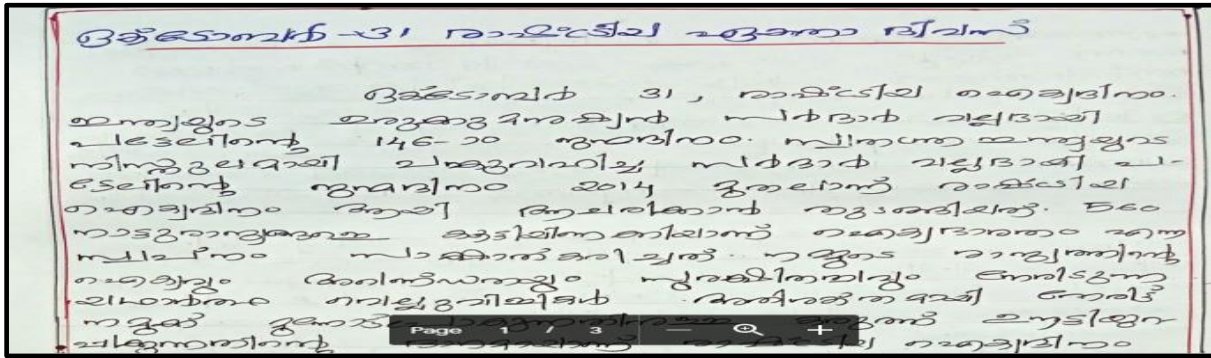 ഒക്ടോബർ -31 രാഷ്ട്രീയ ഏകതാ ദിവസ്
ഒക്ടോബർ 31, രാഷ്ട്രീയ ഐക്യദിനം.
ഇന്ത്യയുടെ ഉരുക്കുമനുഷ്യൻ സർദാർ വല്ലഭായി
പട്ടേലിന്റെ 146-ാo ജന്മദിനം. സ്വതന്ത്ര ഇന്ത്യയുടെ
പങ്കുവഹിച്ച സർദാർ വല്ലഭായി പ-
ട്ടേലിന്റെ ജന്മദിനം 2014 മുതലാണ് രാഷ്ട്രീയ
ഐക്യദിനം ആയി ആചരിക്കാൻ തുടങ്ങിയത്. 560
നാട്ടുരാജ്യങ്ങളെ കൂട്ടിയിണക്കിയാണ് ഐക്യഭാരതം എന്ന
സ്വപ്നം സാക്ഷാത്കരിച്ചത്. നമ്മുടെ രാജ്യത്തിന്റെ
ഐക്യവും അഖണ്ഡതയും സുരക്ഷിതത്വവും നേരിടുന്ന
യഥാർത്ഥ വെല്ലുവിളികൾ നേരിട്
നമുക്ക് കരുത്ത്
രാഷ്ട്രീയ ഐക്യദിനം
Page 1 / 3 — +